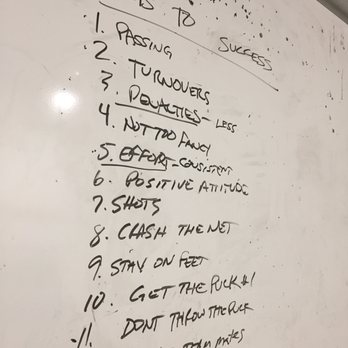 TO SUCCESS
1. PASSING
2. TURNOVERS
3. PENALTIES - LESS
4. NOT TOO FANCY
5. EFFORT - CONSISTENT
6. POSITIVE ATTITUDE
7. SHOTS
8. CRASH THE NET
9. STAY ON FEET
10. GET THE PUCK #1
11. DONT THROW THE PUCK